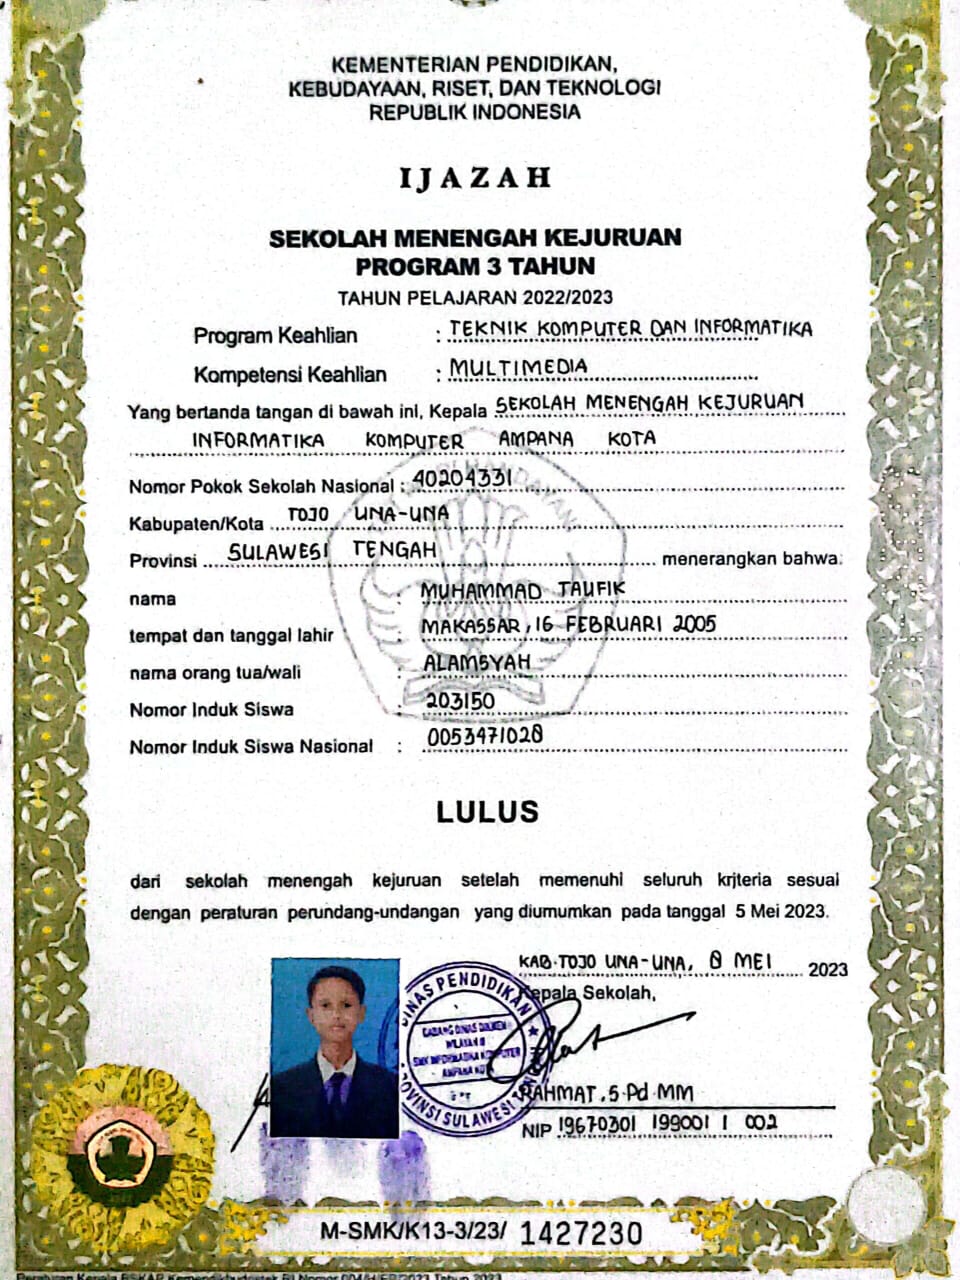 KEMENTERIAN PENDIDIKAN,
KEBUDAYAAN, RISET, DAN TEKNOLOGI
REPUBLIK INDONESIA
IJAZAH
SEKOLAH MENENGAH KEJURUAN
PROGRAM 3 TAHUN
TAHUN PELAJARAN 2022/2023
Program Keahlian : TEKNIK KOMPUTER DAN INFORMATIKA
Kompetensi Keahlian : MULTIMEDIA
Yang bertanda tangan di bawah ini, Kepala SEKOLAH MENENGAH KEJURUAN
INFORMATIKA KOMPUTER AMPANA KOTA
Nomor Pokok Sekolah Nasional : 40204331
Kabupaten/Kota TOJO UNA-UNA
Provinsi SULAWESI TENGAH menerangkan bahwa:
nama : MUHAMMAD TAUFIK
tempat dan tanggal lahir : MAKASSAR, 16 FEBRUARI 2005
nama orang tua/wali : ALAMSYAH
Nomor Induk Siswa : 203150
Nomor Induk Siswa Nasional : 0053471028
LULUS
dari sekolah menengah kejuruan setelah memenuhi seluruh kriteria sesuai
dengan peraturan perundang-undangan yang diumumkan pada tanggal 5 Mei 2023.
KAB. TOJO UNA-UNA, 8 MEI 2023
Kepala Sekolah,
DINAS PENDIDIKAN
SMK INFORMATIKA KOMPUTER
AMPANA KOTA
PROVINSI SULAWESI
RAHMAT, S.Pd. MM
NIP 19670301 199001 1 002
M-SMK/K13-3/23/ 1427230